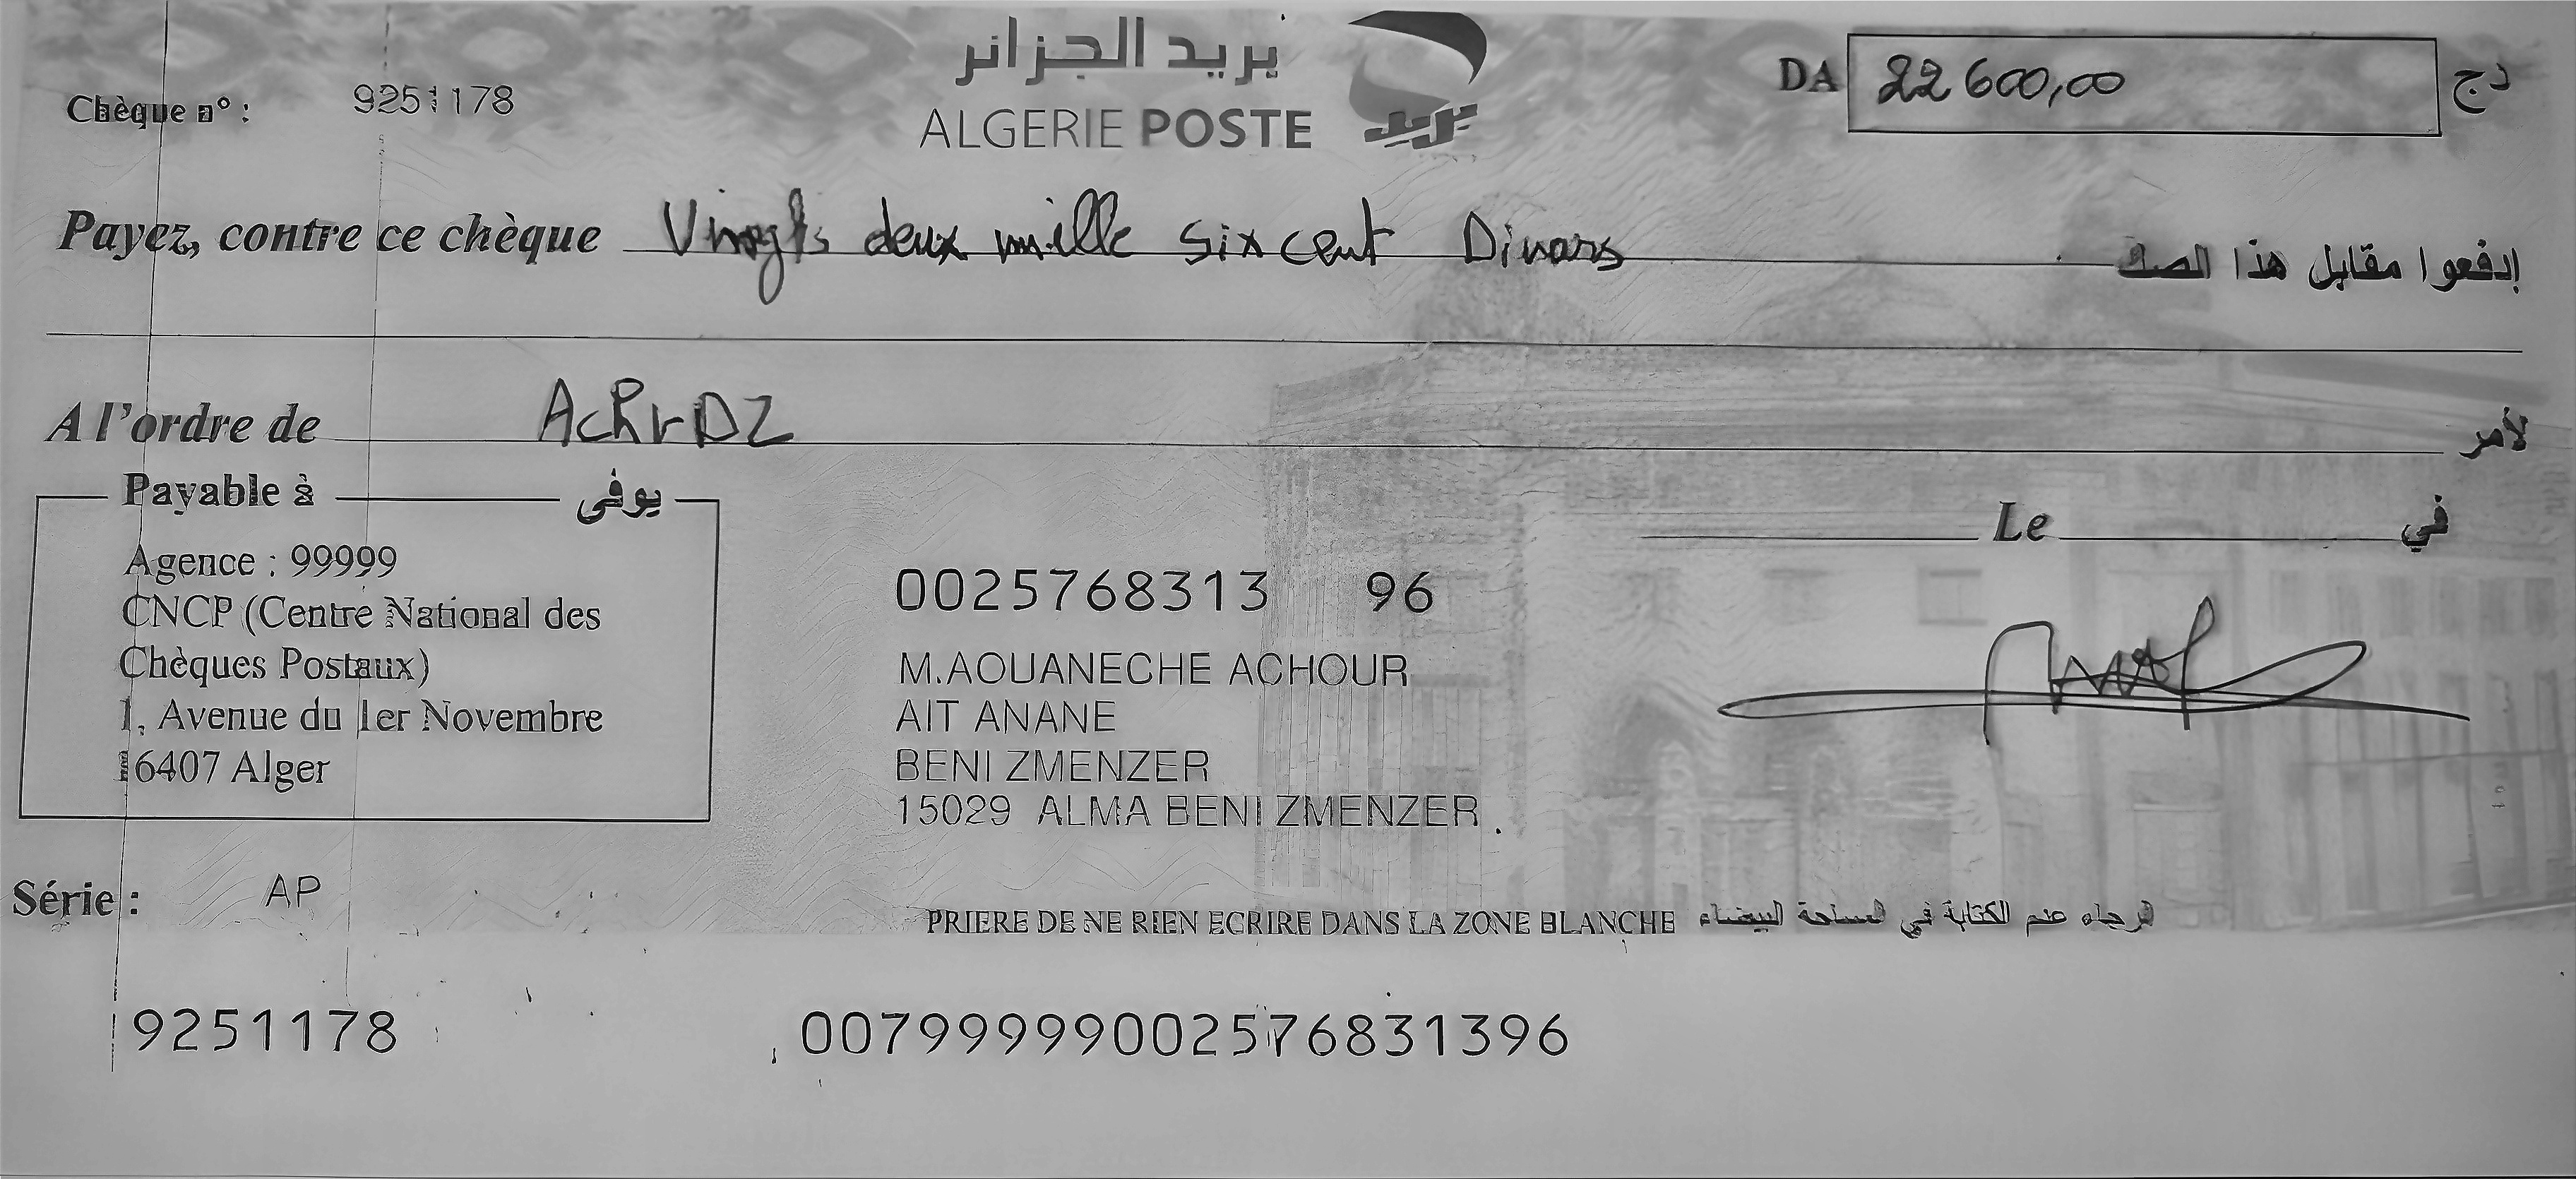 بريد الجزائر
ALGERIE POSTE
بريد
Chèque n° : 9251178
DA 22 600,00 دج
Payez, contre ce chèque Vingts deux mille six cent Dinars إدفعوا مقابل هذا الصك
A l'ordre de لأمر
Payable à يوفى
Agence : 99999
CNCP (Centre National des
Chèques Postaux)
1, Avenue du 1er Novembre
16407 Alger
Le في
0025768313 96
M.AOUANECHE ACHOUR
AIT ANANE
BENI ZMENZER
15029 ALMA BENI ZMENZER
Série : AP
PRIERE DE NE RIEN ECRIRE DANS LA ZONE BLANCHE الرجاء عدم الكتابة في المساحة البيضاء
9251178 00799999002576831396